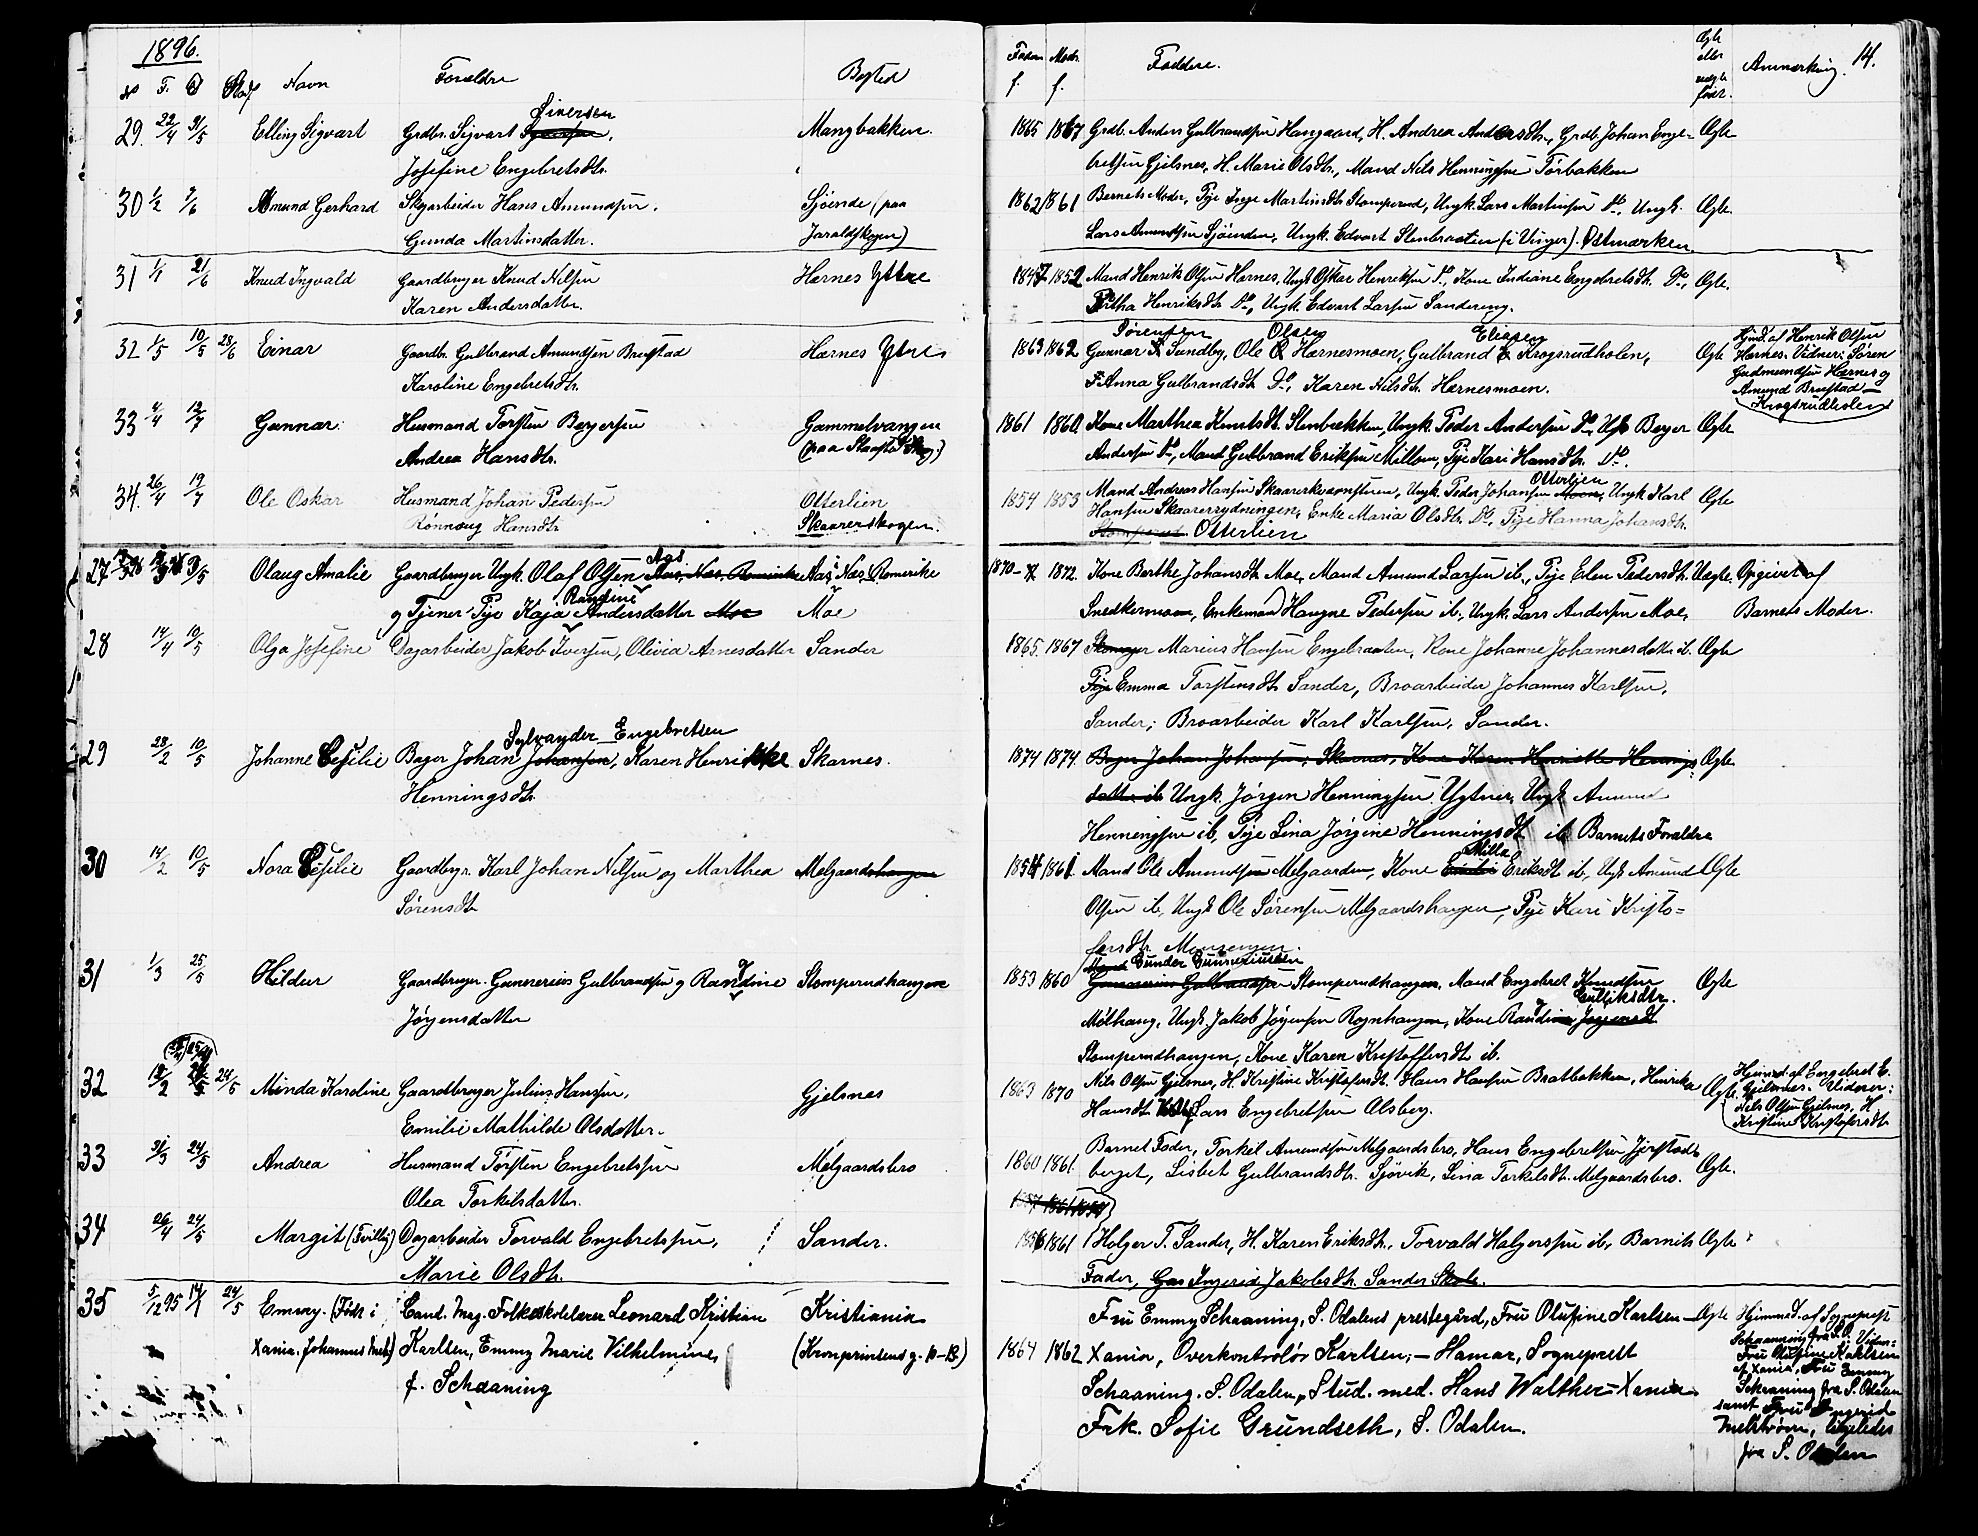 1896.
No F. D Stad Navn Forældre Bosted
29. 22/4 31/5 Elling Sigvart Grdbr. Sigvart Sivertsen, Mangbakken.
Josefine Engebretsdtr.
30 1/2 7/6 Amund Gerhard Skogarbeider Hans Amundsen. Sjøende (paa
Gunda Martinsdatter. Jaraldskogen)
31 1/1 21/6 Knud Ingvald Gaardbruger Knud Nilsen Hernes Ytre
Karen Andersdatter.
32 1/5 10/5 28/6 Einar Gaardbr. Gulbrand Amundsen Brustad Hærnes Ytre
Karoline Engebretsdtr.
33 4/4 12/7 Gunnar. Husmand Torsten Bergersen Gammelvangen
Andrea Hansdtr. (paa Skog)
34. 26/4 19/7 Ole Oskar Husmand Johan Pedersen Otterlien
Rønnaug Hansdtr Skaarerskogen.
27 3/5 Olaug Amalie Gaardbruger Ungk. Olaf Olsen Aas Aas i Næs Romerike
og Tjener Pige Kaja Randine Andersdatter Moe Moe
28 14/4 10/5 Olga Josefine Dagarbeider Jakob Iversen, Olivia Arnesdatter Sander
Sylvander Engebretsen
29 28/2 10/5 Johanne Cesilie Bager Johan Johansen, Karen Henrikke Skarnes.
Henningsdtr.
30 14/2 10/5 Nora Cesilie Gaardbrgr. Karl Johan Nilsen og Marthea Melgaardshangen
Sørensdtr
31 1/3 25/5 Hildur Gaardbruger. Gunnerius Gulbrandsen og Randine Stomperudhaugen
Jørgensdatter
32 12/2 24/5 Minda Karoline Gaardbruger Julius Hansen, Gjelsnes
Emilie Mathilde Olsdatter.
33 31/3 24/5 Andrea Husmand Torsten Engebretsen Melgaardsbro
Olea Torkilsdatter.
34 26/4 24/5 Margit (Tvilling) Dagarbeider Torvald Engebretsen, Sander.
Marie Olsdtr.
35 5/12 95 14/1 24/5 Emmy. (Født i Cand. Mag. Folkeskolelærer Leonard Kristian Kristiania
Xania. Johannes Karlsen, Emmy Marie Vilhelmine, (Kronprinsens g. 10-13)
f. Schaaning
Faders f. Moders f. Faddere. Ægte eller uægte født. Anmærkning. 14.
1865 1867 Grdb. Anders Gulbrandsen Haugaard, H. Andrea Andersdtr., Grdb. Johan Enge- Ægte
bretsen Gjelsnes, H. Marie Olsdtr., Mand Nils Henningsen Torbakken
1862 1861 Bernets Moder, Pige Inge Martinsdtr Stomperud, Ungk. Lars Martinsen Do, Ungk. Ægte.
Lars Amundsen Sjøenden, Ungk. Edvart Stenbraaten (i Vinger). Østmarken
1847 1852 Mand Henrik Olsen Hernes, Ungk Oskar Henriksen Do, Kone Indiane Engebretsdtr. Do, Ægte.
Henriksdtr Do, Ungk. Edvart Larsen Sandereng.
Sørensen Olsen Eliasen
1863 1862 Gunnar Sundby, Ole Hærnesmoen, Gulbrand Krogsrudholen, Ægte
Anna Gulbrandsdtr Do, Karen Nilsdtr. Hernesmoen.
Hjmd. af Henrik Olsen
Hærnes. Vidner: Søren
Gudmundsen Hærnes og
Amund Brustad —
Krogsrudholen
1861 1860 Kone Marthea Knutsdt. Stenbækken, Ungk. Peder Andersen Do, Ugk Berger Ægte
Andersen Do, Mand Gulbrand Eriksen Millom, Pige Kari Hansdtr. Do.
Otterlien
1854 1853 Mand Andreas Hansen, Ungk. Peder Johansen Moen, Ungk Karl Ægte
Hansen Skaarerrydningen, Enke Maria Olsdtr. Do, Pige Hanna Johansdtr.
Stomperud Otterlien
1870 1872. Kone Berthe Johansdtr. Moe, Mand Amund Larsen ib., Pige Elen Pedersdtr. Uægte. Opgivet af
Snedkermoen, Enkemand Haugne Pedersen ib, Ungk. Lars Andersen Moe, Barnets Moder.
1865. 1867 Marius Hansen Engebraaten, Kone Johanne Johannesdatter ib. Ægte
Pige Emma Torstensdtr Sander, Broarbeider Johannes Karlsen,
Sander; Broarbeider Karl Karlsen, Sander.
1874 1874. Bager Johan Johansen, Skarnes, Kone Karen Henrikke Hennings- Ægte
datter ib Ungk. Jørgen Henningsen Ugtner, Ungk Amund
Henningsen ib, Pige Lina Jørgine Henningsdt ib. Barnets Forældre
Milla
1854 1861 Mand Ole Amundsen Melgaarden, Kone Emilie Eriksdt ib, Ungk Amund Ægte
Olsen ib, Ungk Ole Sørensen Melgaardshaugen, Pige Kari Kristo-
fersdtr.
Gunder Gunneriussen
1853 1860 Gunnerius Gulbrandsen Stomperudhaugen, Mand Engebret Knudsen Ægte
Gulliksdtr.
Mølhaug, Ungk. Jakob Jørgensen Rognhaugen, Kone Randine Jørgensdt
Stomperudhaugen, Kone Karen Kristoffersdt ib.
1863 1870 Nils Olsen Gjelsnes, H. Kristine Kristofersdt. Hans Hansen Bratbakken, Henrika Ægte.
Hansdt Lars Engebretsen Olsberg.
Heimed. af Engebret E.
Gjelsnes. Vidner:
Nels Olsen Gjelsnes, H
Kristine Kristofersdt
1860 1861. Barnet Fader, Torkel Amundsen Melgaardsbro, Hans Engebretsen Gjerstad-
berget, Lisbet Gulbrandsdtr. Sjøvik, Lina Torkelsdt. Melgaardsbro. Ægte.
1856 1861 Holger T. Sander, H. Karen Eriksdt., Torvald Halgersen ib., Barnets Ægte
Fader, Ingerid Jakobsdtr. Sander Skole.
Fru Emmy Schaaning, S. Odalens prestegård, Fru Olufine Karlsen — Ægte
1864 1862 Xania, Overkontrolør Karlsen, — Hamar, Sogneprest
Schaaning. S. Odalen, Stud. med. Hans Walther — Xania
Frk. Sofie Grundseth, S. Odalen.
Hjemmed. af Sogneprest
Schaaning fra S.O. Vidn:
Fru Olufine Karlsen
af Xania, Fru Emmy
Schaaning fra S. Odalen
samt Fru Ingerid
Melstrøm,
fra S. Odalen